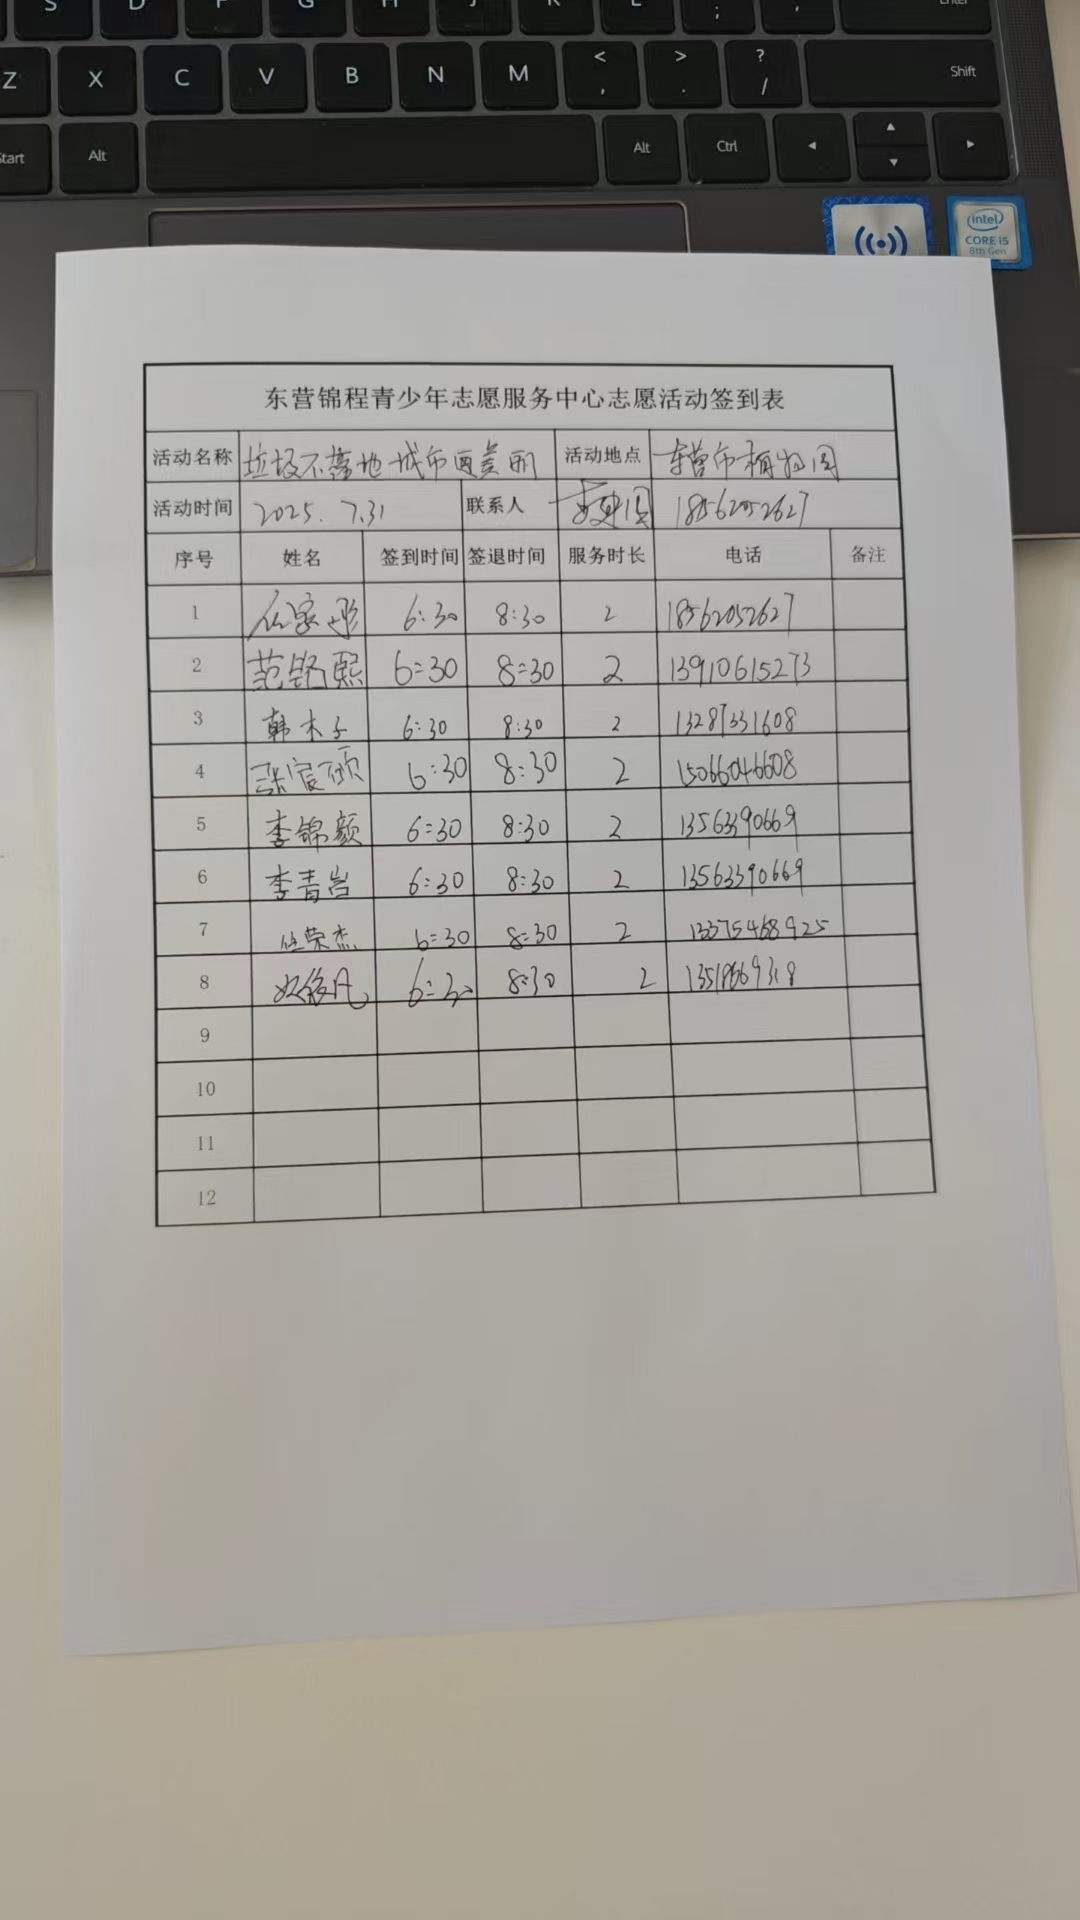 S D F G H J K L ; , Enter
Z X C V B N M < , > . ? / Shift
Start Alt Alt Ctrl
intel CORE i5 8th Gen
东营锦程青少年志愿服务中心志愿活动签到表
活动名称 垃圾不落地 城市更美丽 活动地点 东营市植物园
活动时间 2025.7.31 联系人 18562052627
序号 姓名 签到时间 签退时间 服务时长 电话 备注
1 6:30 8:30 2 18562052627
2 范铭熙 6:30 8:30 2 13910615273
3 韩木子 6:30 8:30 2 13287331608
4 6:30 8:30 2 15066046608
5 李锦颜 6:30 8:30 2 13563390669
6 李青岩 6:30 8:30 2 13563390669
7 伍荣杰 6:30 8:30 2 13375468925
8 6:30 8:30 2
9
10
11
12